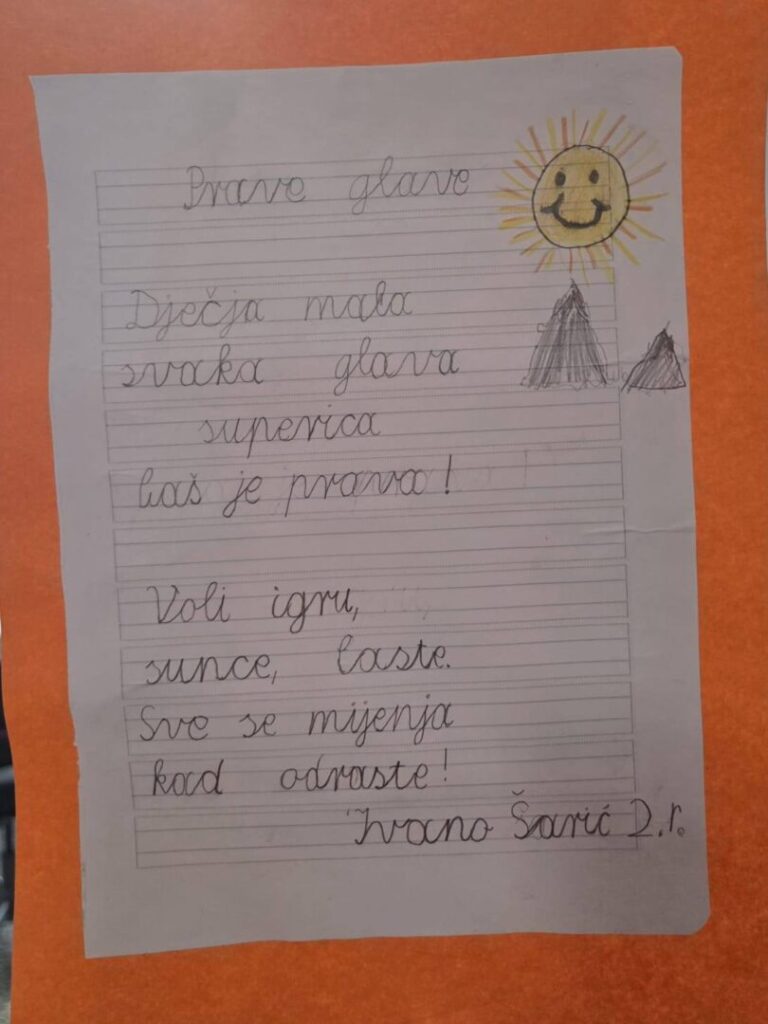 Prave glave
Dječja mala
svaka glava
superica
baš je prava!
Voli igru,
sunce, laste.
Sve se mijenja
kad odraste!
Ivano Šarić 2.r.